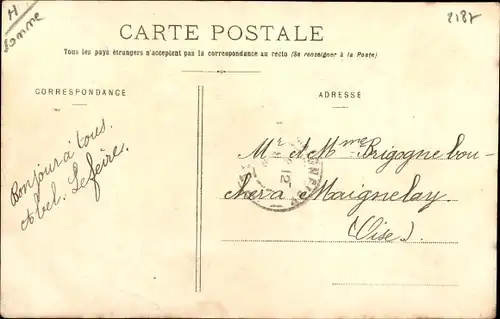 H
Somme
2187
CARTE POSTALE
Tous les pays étrangers n'acceptent pas la correspondance au recto (Se renseigner à la Poste)
CORRESPONDANCE
ADRESSE
Bonjour à tous.
Abel. Lefèvre.
Mr et Mme Brigogne bou-
chera Maignelay
(Oise).
12